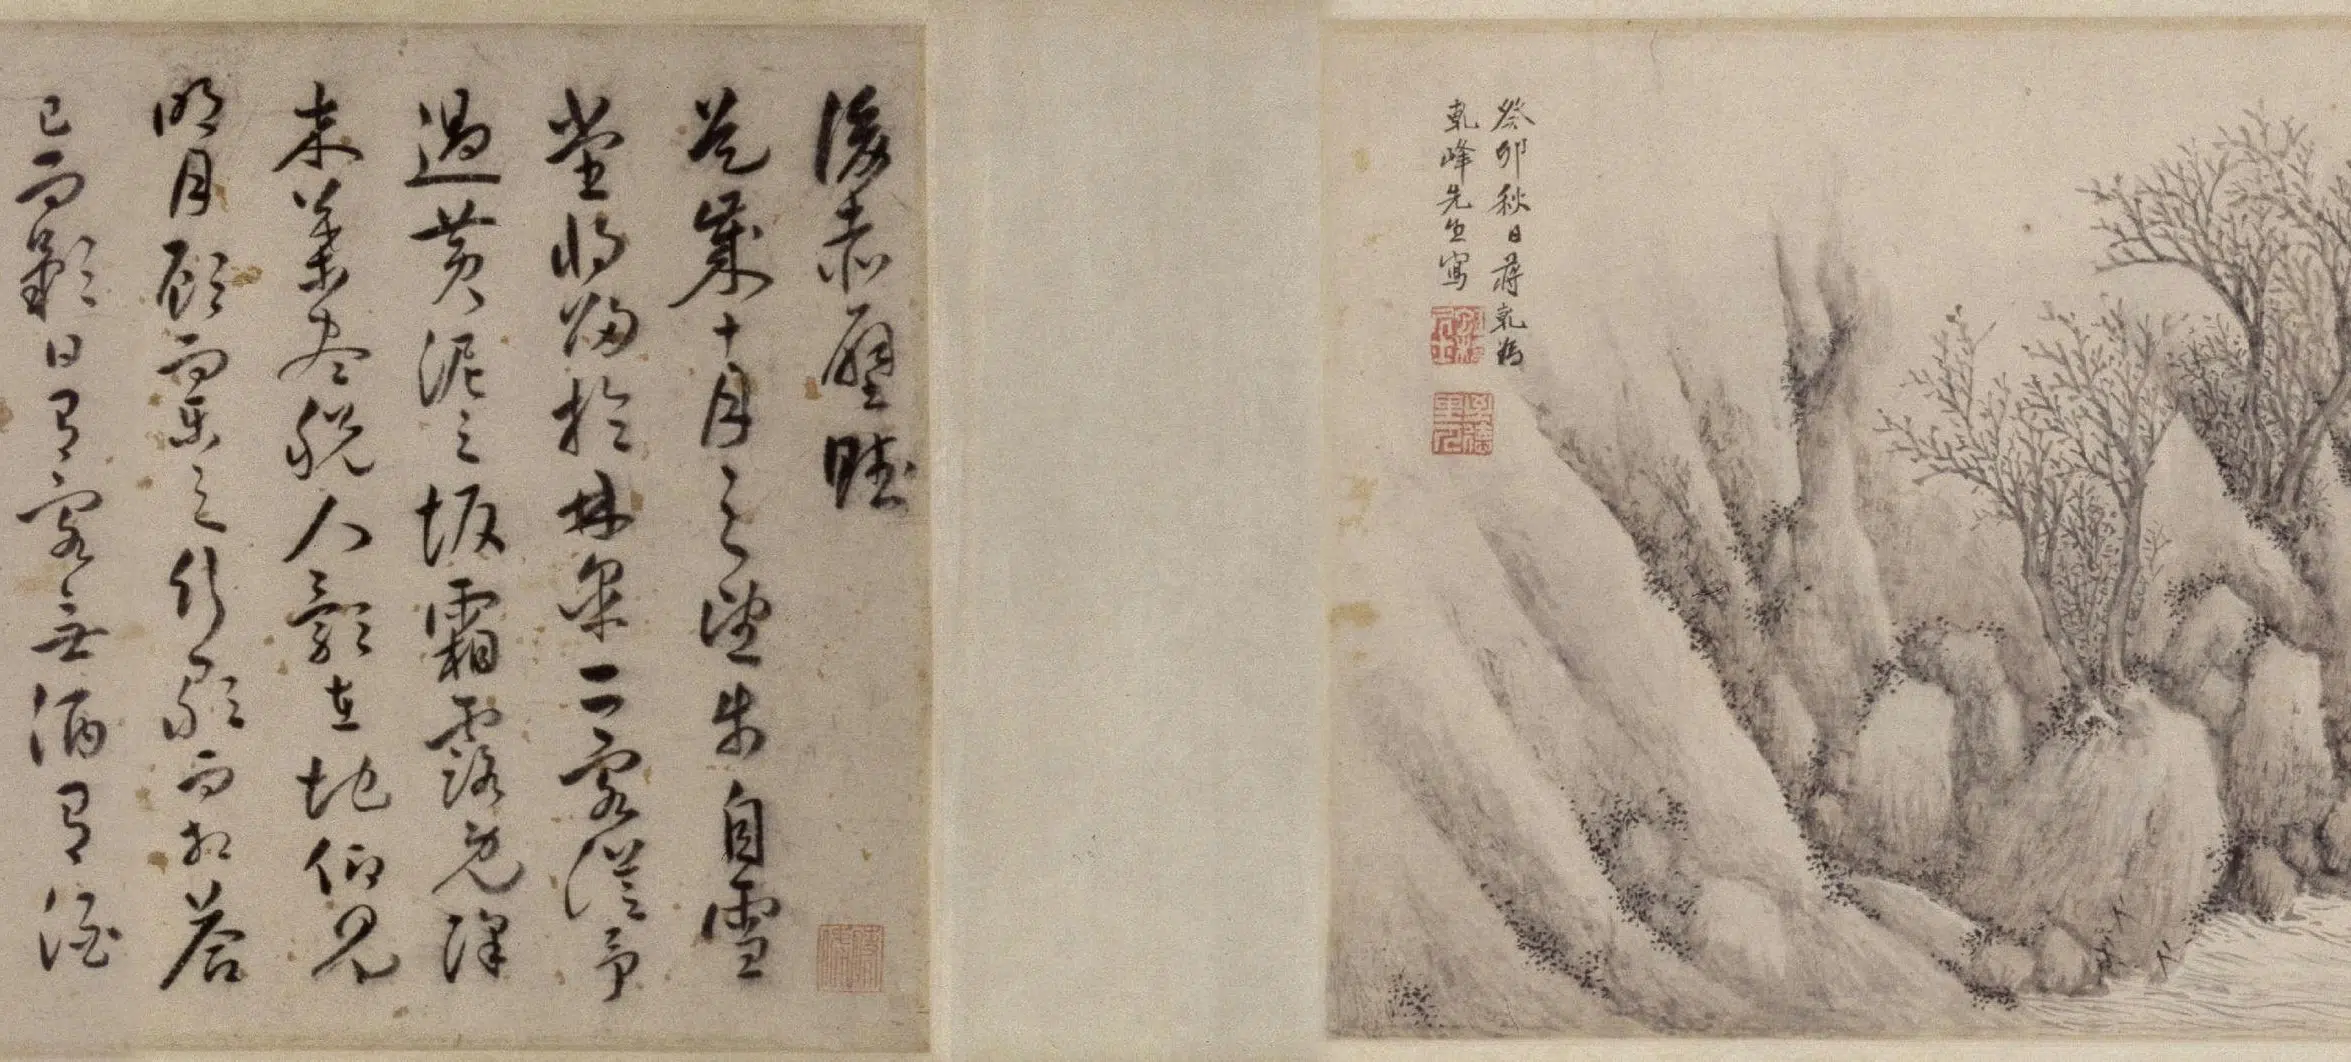 癸卯秋日蔣乾為
乾峰先生寫
後赤壁賦
是歲十月之望步自雪
堂將歸於臨皋二客從予
過黃泥之坂霜露既降
木葉盡脫人影在地仰見
明月顧而樂之行歌而相答
已而歎曰有客無酒有酒